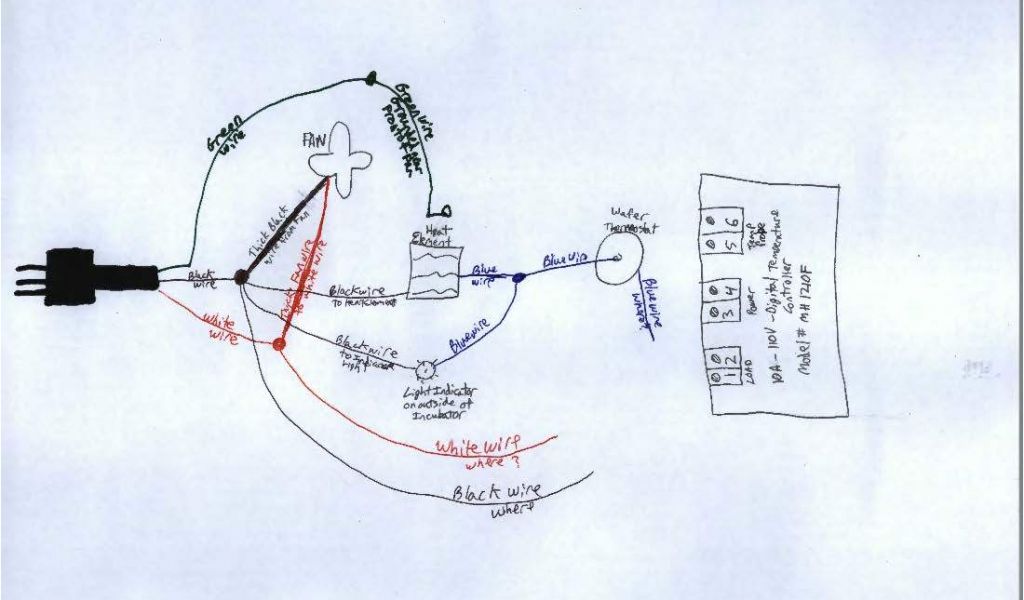 Green
wire
Green wire
FAN
Thick Black
wire from Fan
to white wire
Heat
Element
Wafer
Thermostat
Black
wire
Black wire
to Heat Element
Blue
wire
Blue wire
White
wire
Black wire
to Indicator
Light
Blue wire
Light Indicator
on outside of
Incubator
White wire
where?
Black wire
where
1 2
LOAD
3 4
Power
5 6
Temp
Probe
10A - 110V - Digital Temperature
Controller
Model # MH1210F